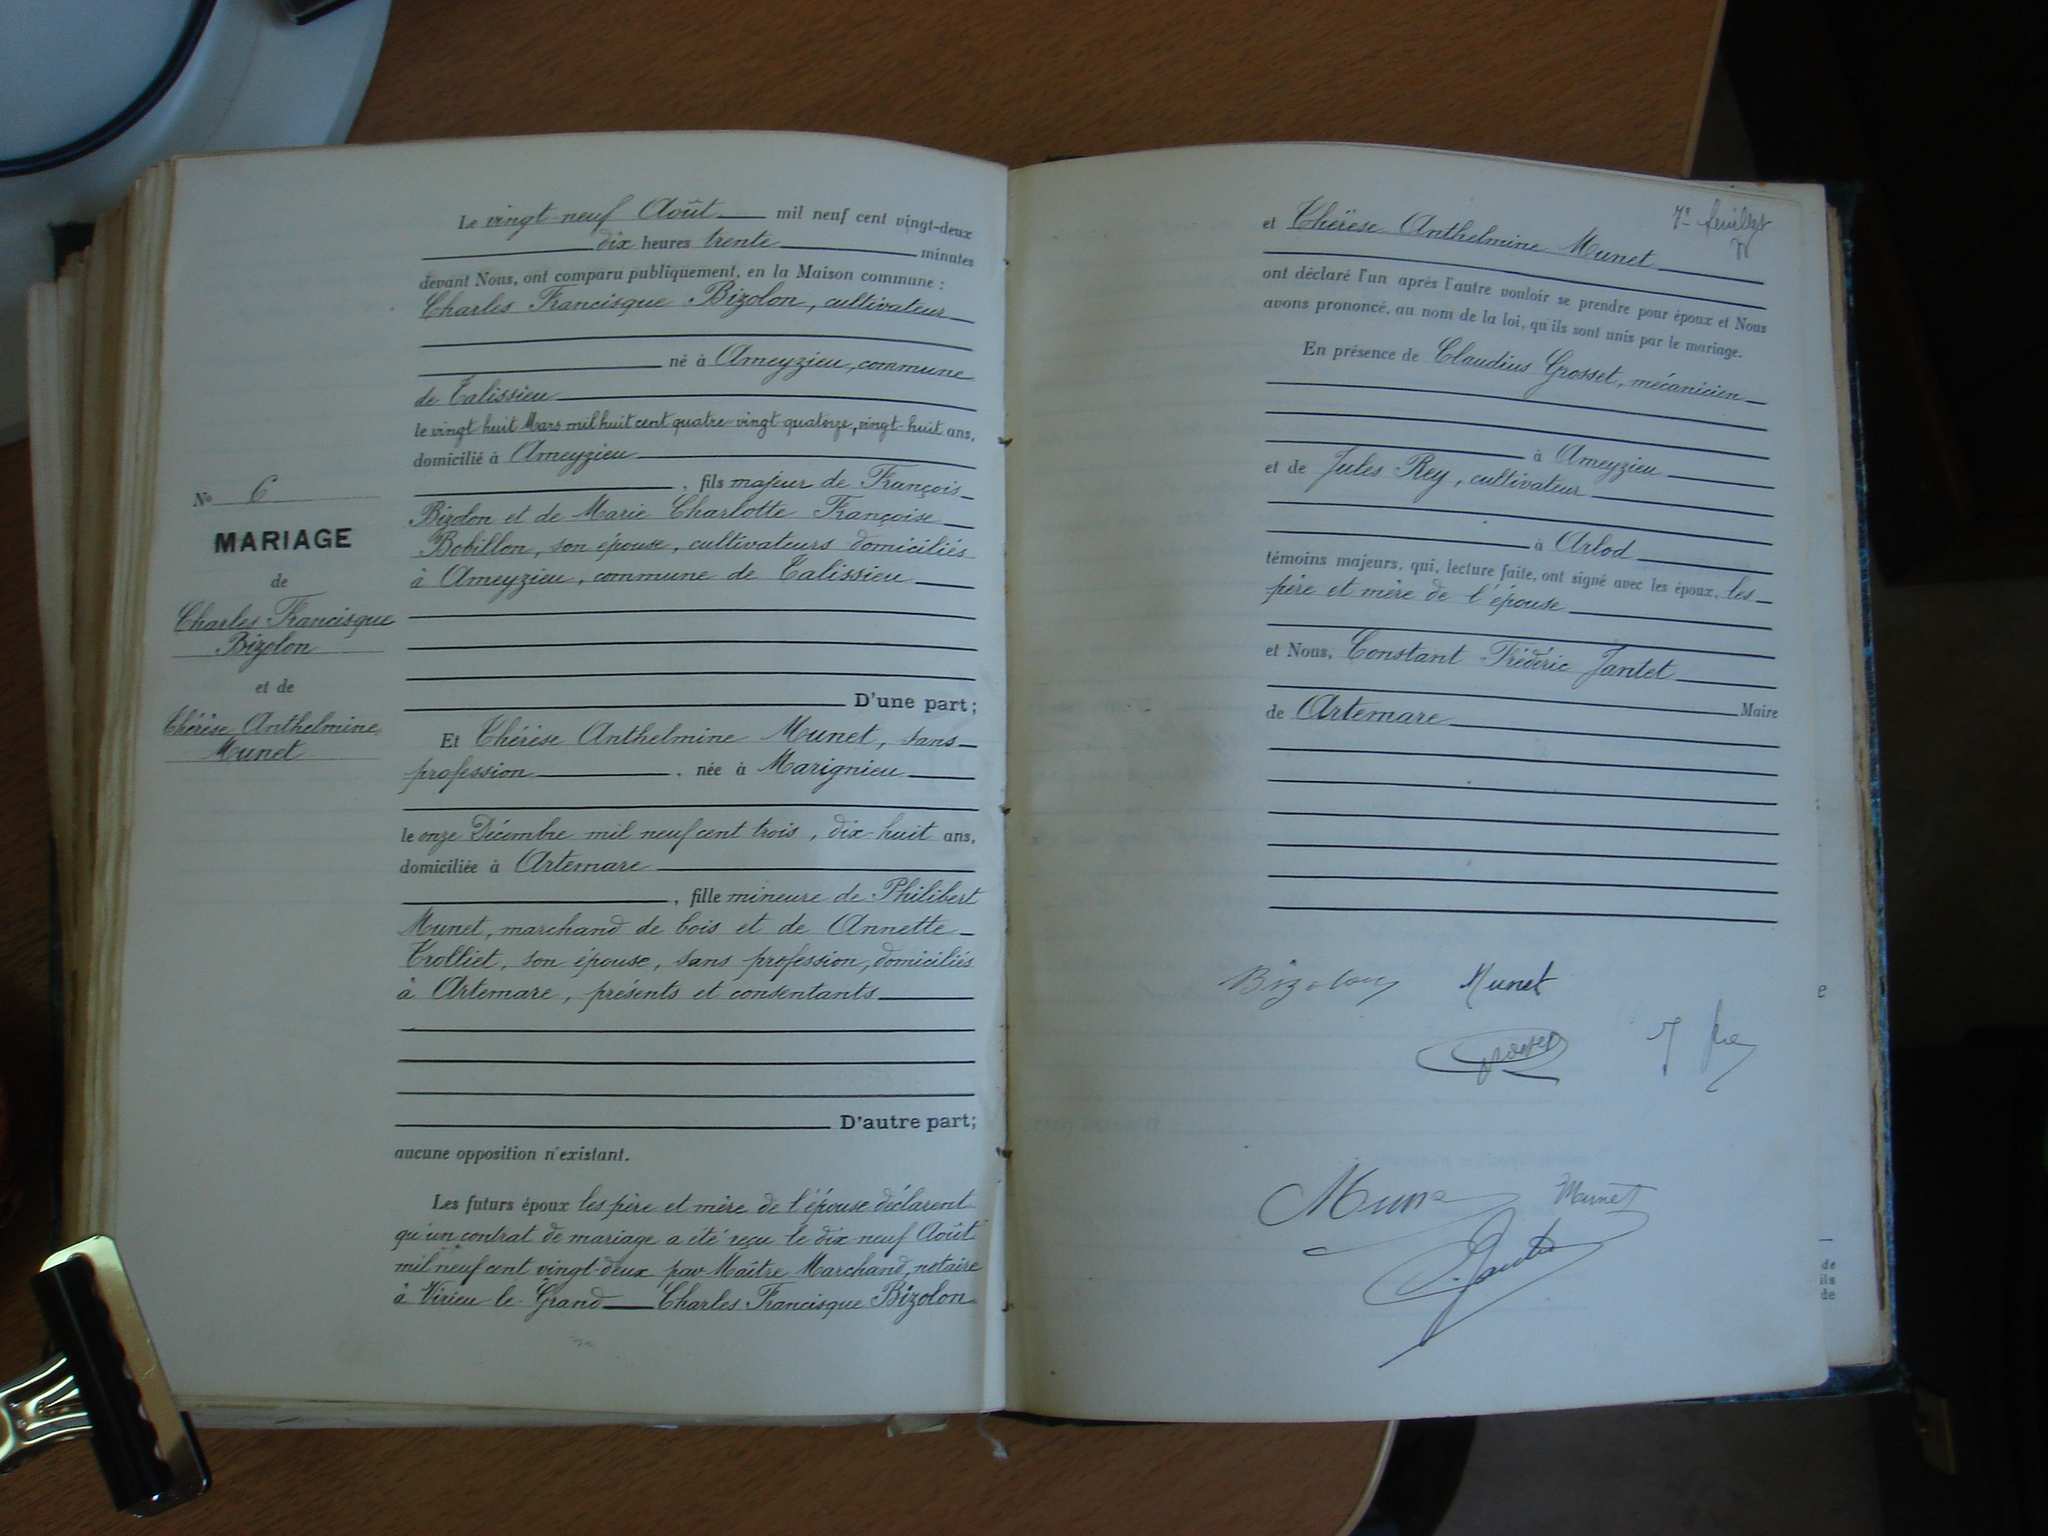 Le vingt-neuf Août mil neuf cent vingt-deux
dix heures trente minutes
devant Nous, ont comparu publiquement, en la Maison commune :
Charles Francisque Bizolon, cultivateur
né à Ameyzieu, commune
de Talissieu
le vingt huit Mars mil huit cent quatre-vingt-quatorze, vingt-huit ans,
domicilié à Ameyzieu
, fils majeur de François
Bizolon et de Marie Charlotte Françoise
Bobillon, son épouse, cultivateurs domiciliés
à Ameyzieu, commune de Talissieu
D'une part;
Et Thérèse Anthelmine Munet, sans
profession, née à Marignieu
le onze Décembre mil neuf cent trois, dix-huit ans,
domiciliée à Artemare
, fille mineure de Philibert
Munet, marchand de bois et de Annette
Trolliet, son épouse, sans profession, domiciliés
à Artemare, présents et consentants
D'autre part;
aucune opposition n'existant.
Les futurs époux les père et mère de l'épouse déclarent
qu'un contrat de mariage a été reçu le dix neuf Août
mil neuf cent vingt-deux par Maître Marchand, notaire
à Virieu-le-Grand Charles Francisque Bizolon
No 6
MARIAGE
de
Charles Francisque
Bizolon
et de
Thérèse Anthelmine
Munet
7e feuillet
et Thérèse Anthelmine Munet
ont déclaré l'un après l'autre vouloir se prendre pour époux et Nous
avons prononcé, au nom de la loi, qu'ils sont unis par le mariage.
En présence de Claudius Grosset, mécanicien
à Ameyzieu
et de Jules Rey, cultivateur
à Arlod
témoins majeurs, qui, lecture faite, ont signé avec les époux, les
père et mère de l'épouse
et Nous, Constant Frédéric Jantet
Maire
de Artemare
Bizolon Munet
Munet
e
de
ils
de